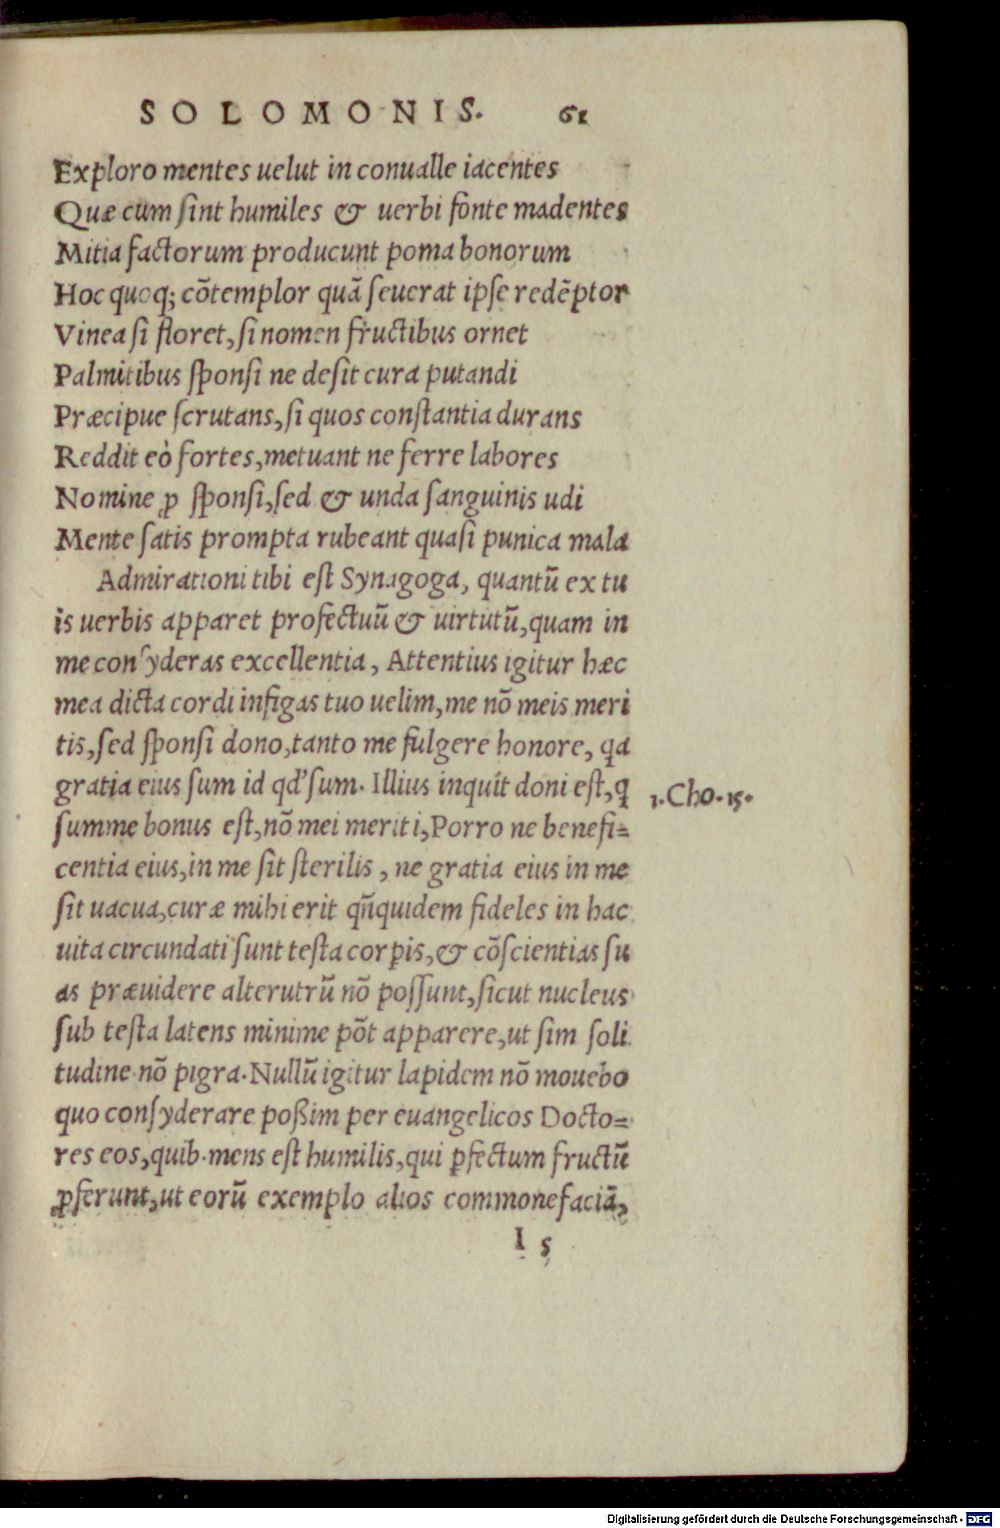 SOLOMONIS. 61
Exploro mentes uelut in conualle iacentes
Quæ cum ſint humiles & uerbi fonte madentes
Mitia factorum producunt poma bonorum
Hoc quoq; cõtemplor quã ſeuerat ipſe redẽptor
Vinea ſi floret, ſi nomen fructibus ornet
Palmitibus ſponſi ne deſit cura putandi
Præcipue ſcrutans, ſi quos conſtantia durans
Reddit eò fortes, metuant ne ferre labores
Nomine ꝓ ſponſi, ſed & unda ſanguinis udi
Mente ſatis prompta rubeant quaſi punica mala
Admirationi tibi eſt Synagoga, quantũ ex tu
is uerbis apparet profectuũ & uirtutũ, quam in
me conſyderas excellentia, Attentius igitur hæc
mea dicta cordi infigas tuo uelim, me nõ meis meri
tis, ſed ſponſi dono, tanto me fulgere honore, qa
gratia eius ſum id qd' ſum. Illius inquit doni eſt, q
1. Cho. 15.
ſumme bonus eſt, nõ mei meriti, Porro ne benefi=
centia eius, in me ſit ſterilis, ne gratia eius in me
ſit uacua, curæ mihi erit qñquidem fideles in hac
uita circundati ſunt teſta corꝑis, & cõſcientias ſu
as præuidere alterutrũ nõ poſſunt, ſicut nucleus
ſub teſta latens minime põt apparere, ut ſim ſoli
tudine nõ pigra. Nullũ igitur lapidem nõ mouebo
quo conſyderare poßim per euangelicos Docto=
res eos, quib. mens eſt humilis, qui ꝑfectum fructũ
ꝓferunt, ut eorũ exemplo alios commonefaciã,
I 5
Digitalisierung gefördert durch die Deutsche Forschungsgemeinschaft - DFG